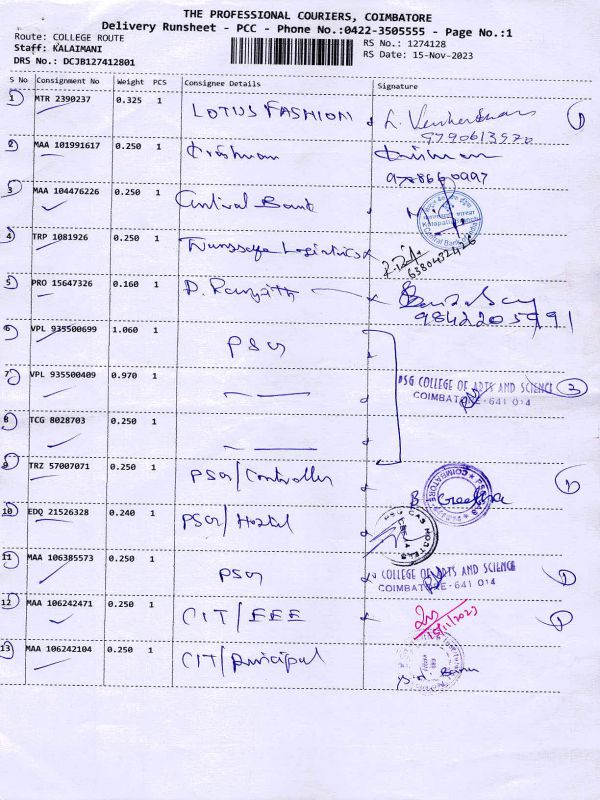 THE PROFESSIONAL COURIERS, COIMBATORE
Delivery Runsheet - PCC - Phone No.:0422-3505555 - Page No.:1
Route: COLLEGE ROUTE
RS No.: 1274128
Staff: KALAIMANI
RS Date: 15-Nov-2023
DRS No.: DCJB127412801
S No Consignment No Weight PCS Consignee Details Signature
1 MTR 2390237 0.325 1 LOTUS FASHION
2 MAA 101991617 0.250 1 Krishnan
3 MAA 104476226 0.250 1 Central Bank
4 TRP 1081926 0.250 1 Logistics
6380432426
5 PRO 15647326 0.160 1 P. Ranjith
9842205991
6 VPL 935500699 1.060 1 PSG
7 VPL 935500409 0.970 1 — —
PSG COLLEGE OF ARTS AND SCIENCE 3
COIMBATORE - 641 014
8 TCG 8028703 0.250 1 — —
9 TRZ 57007071 0.250 1 PSG/Controller 1
B. Geetha
COIMBATORE
10 EDQ 21526328 0.240 1 PSG/Hostel
PSG CAS HOSTELS
11 MAA 106385573 0.250 1 PSG
COLLEGE OF ARTS AND SCIENCE 1
COIMBATORE - 641 014
12 MAA 106242471 0.250 1 CIT/EEE 1
15/11/2023
13 MAA 106242104 0.250 1 CIT/Principal